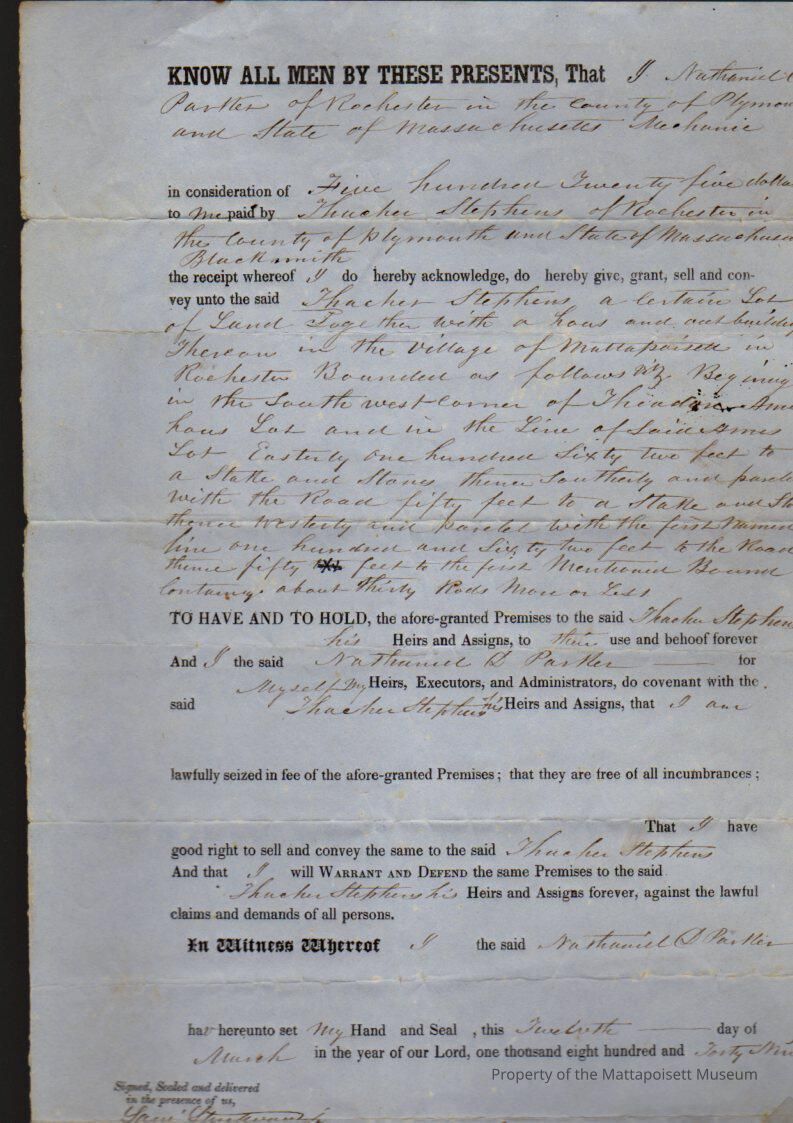 KNOW ALL MEN BY THESE PRESENTS, That I Nathaniel
Parker of Rochester in the County of Plymou
and State of Massachusetts Mechanic
in consideration of Five hundred Twenty five dolla
to me paid by Thacher Stephens of Rochester in
the County of Plymouth and State of Massachuse
Blacksmith
the receipt whereof I do hereby acknowledge, do hereby give, grant, sell and con-
vey unto the said Thacher Stephens a Certain Lot
of Land Together with a hous and outbuilding
Thereon in the Village of Mattapoisett in
Rochester Bounded as follows viz Begining
in the South west Corner of Ame
hous Lot and in the Line of Said Ames
Lot Easterly one hundred Sixty two feet to
a Stake and Stones thence Southerly and parale
with the Road fifty feet to a Stake and Sto
thence westerly and paralel with the first Named
line one hundred and Sixty two feet to the Road
thence fifty feet to the first Mentioned Bound
Containg about Thirty Rods More or Less
TO HAVE AND TO HOLD, the afore-granted Premises to the said Thacher Stephens
his Heirs and Assigns, to their use and behoof forever
And I the said Nathaniel D Parker for
Myself My Heirs, Executors, and Administrators, do covenant with the
said Thacher Stephens his Heirs and Assigns, that I am
lawfully seized in fee of the afore-granted Premises; that they are free of all incumbrances;
That I have
good right to sell and convey the same to the said Thacher Stephens
And that I will WARRANT AND DEFEND the same Premises to the said
Thacher Stephens his Heirs and Assigns forever, against the lawful
claims and demands of all persons.
In Witness Whereof I the said Nathaniel D Parker
have hereunto set My Hand and Seal, this Twelveth day of
March in the year of our Lord, one thousand eight hundred and forty Nin
Property of the Mattapoisett Museum
Signed, Sealed and delivered
in the presence of us,